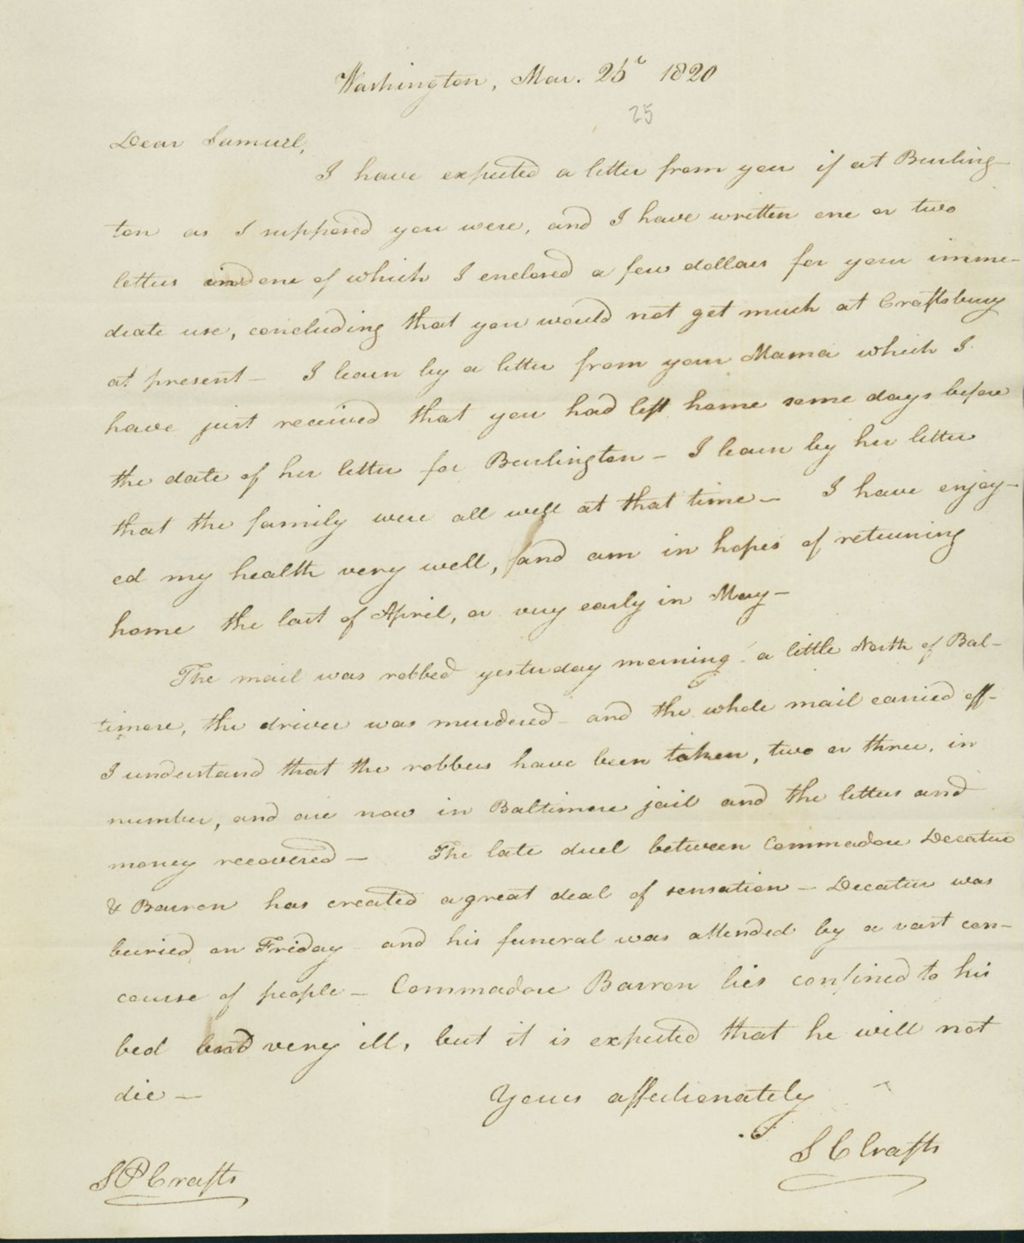 Washington, Mar. 25th 1820
25
Dear Samuel,
I have expected a letter from you if at Burling-
ton as I supposed you were, and I have written one or two
letters and one of which I enclosed a few dollars for your imme-
diate use, concluding that you would not get much at Craftsbury
at present - I learn by a letter from your Mama which I
have just received that you had left home some days before
the date of her letter for Burlington - I learn by her letter
that the family were all well at that time - I have enjoy-
ed my health very well, and am in hopes of returning
home the last of April, or very early in May -
The mail was robbed yesterday morning a little North of Bal-
timore, the driver was murdered - and the whole mail carried off -
I understand that the robbers have been taken, two or three, in
number, and are now in Baltimore jail and the letters and
money recovered - The late duel between Commodore Decatur
& Barron has created a great deal of sensation - Decatur was
buried on Friday - and his funeral was attended by a vast con-
course of people - Commodore Barron lies confined to his
bed and very ill, but it is expected that he will not
die -
Yours affectionately
S C Crafts
S P Crafts